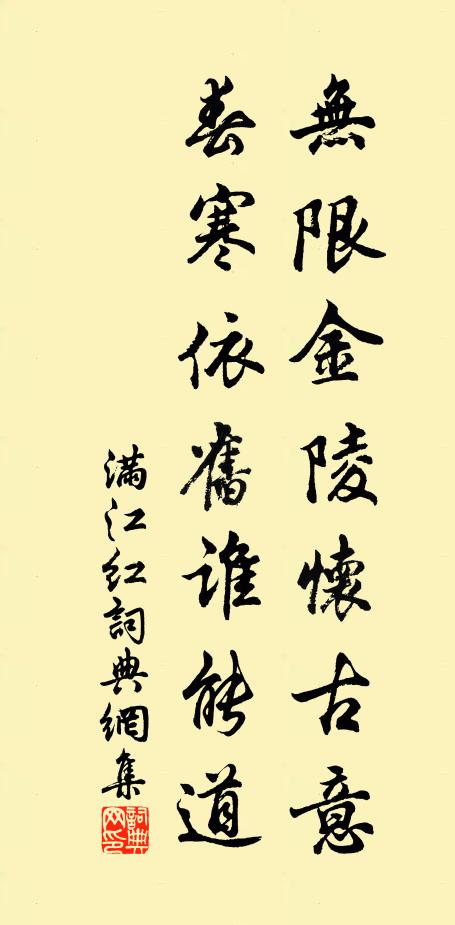 無限金陵懷古意
春寒依舊誰能道
满江红詞典網集
詞典
网印